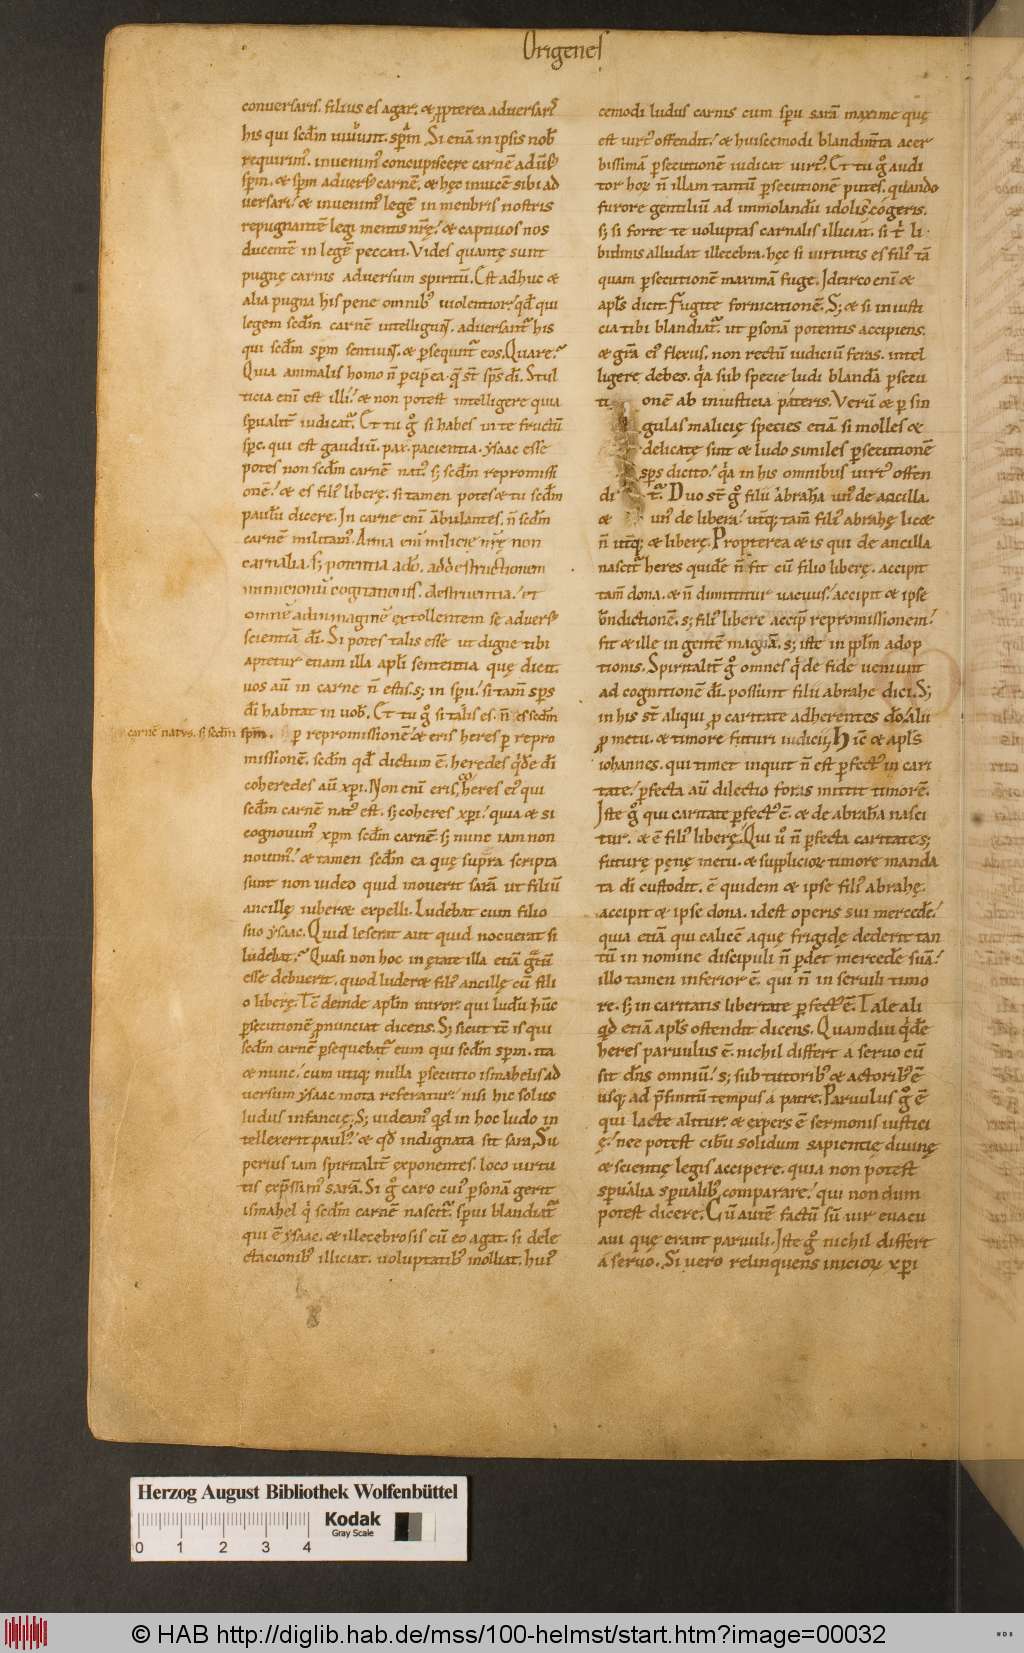 Origenes
conuersaris. filius es agar. & ꝓpterea aduersaris
his qui scdm̄ uiuunt. spm̄. Si etiā in ipsis nob
requirim'. inuenim' concupiscere carnē aduūs
spm̄. & spm̄ aduers' carnē. & hęc inuicē sibi ad
uersari. & inuenim' legē in menbris nostris
repugnantē legi mentis nrę. & captiuos nos
ducentē in legē peccati. Vides quantę sunt
pugnę carnis aduersum spiritū. Est adhuc &
alia pugna his pene omnib; uiolentior. qd qui
legem scdm̄ carnē intelligunt. aduersant his
qui scdm̄ spm̄ sentiunt. & ꝑsequnt eos. Quare?
Quia animalis homo n̄ ꝑcipit ea. quę st̄ sps dī. Stul
ticia enī est illi. & non potest intelligere quia
spūalit iudicat. Et tu gͦ si habes in te fructū
spc. qui est gaudiū. pax. pacientia. ysaac esse
potes non scdm̄ carnē nat'. sꝫ scdm̄ repromissi
onē. & es fili' liberę. si tamen potes & tu scdm̄
paulū dicere. In carne enī ābulantes. n̄ scdm̄
carnē militam'. Arma enī milicię nrę non
carnalia. sꝫ potentia a dō. ad destructionem
munitionū cogitationes destruentia. et
scientiā dī. Si potes talis esse ut digne tibi
aptetur etiam illa apli sententia quę dicit.
uos aū in carne n̄ estis. sꝫ in spu. si tam sps
dī habitat in uob. Et tu gͦ si talis es. n̄ es scdm̄
carnē natus. sꝫ scdm̄ spm̄. ꝑ repromissionē. & eris heres ꝑ repro
missionē. scdm̄ qd dictum ē. heredes qͥdē dī
coheredes aū xpi. Non enī eris coheres ei' qui
scdm̄ carnē nat' est. sꝫ coheres xpi. quia & si
cognouim' xpm scdm̄ carnē. sꝫ nunc iam non
nouim'. & tamen scdm̄ ea quę supra scripta
sunt non uideo quid mouerit sarā ut filiū
ancillę iuberet expelli. Ludebat cum filio
suo ysaac. Quid leserat aut quid nocuerat si
ludebat? Quasi non hoc in ętate illa etiā gratū
esse debuerit. quod luderet fili' ancillę cū fili
o liberę. Tē deinde aplm̄ miror. qui ludū hūc
ꝑsecutionē ꝓnunciat dicens. Sꝫ sicut tc̄ is qui
scdm̄ carnē ꝑsequebat eum qui scdm̄ spm̄. ita
& nunc. cum utiqꝫ nulla ꝑsecutio ismahelis ad
uersum ysaac mota referatur. nisi hic solus
ludus infancię. Sꝫ uideam' qd in hoc ludo in
tellexerit paul'. & qd indignata sit sara. Su
perius iam spiritalit exponentes. loco uirtu
tis exp̄ssim' sarā. Si gͦ caro cui' ꝑsonā gerit
ismahel qͥ scdm̄ carnē nascit. spiui blandiat
qui ē ysaac. & illecebrosis cū eo agat. si dele
ctacionib; illiciat. uoluptatib; molliat. hui'
cemodi ludus carnis cum spu sarā maxime quę
est uirt' offendit. & huiscemodi blandim̄ta acer
bissimā ꝑsecutionē iudicat uirt'. Et tu gͦ audi
tor horꝫ n̄ illam tantū ꝑsecutionē putes. quando
furore gentiliū ad immolandū idolis cogeris.
sꝫ si forte te uoluptas carnalis illiciat. si tͥ li
bidinis alludat illecebra. hęc si uirtutis es fili' tā
quam ꝑsecutionē maximā fuge. Idcirco enī &
apls dicit. Fugite fornicationē. Sꝫ & si iniusti
cia tibi blandiat. ut ꝑsonā potentis accipiens.
& gr̄a ei' flexus. non rectū iudiciū feras. intel
ligere debes. qͥa sub specie ludi blandā ꝑsecu
ti onē ab iniusticia pateris. Verū & ꝑ sin
gulas malicię species etiā si molles &
delicatę sint & ludo similes ꝑsecutionē
sps dicito. qͥa in his omnibus uirt' offen
di t̄. Duo st̄ gͦ filii abrahā un' de ancilla.
& un' de libera. utqꝫ tam fili' abrahę lic&
n̄ utqꝫ & liberę. Propterea & is qui de ancilla
nascit heres quidē n̄ fit cū filio liberę. accipit
tam dona. & n̄ dimittitur uacuus. accipit & ipse
bn̄dictionē. sꝫ fili' libere accip repromissionem.
fit & ille in gentē magnā. sꝫ iste in pplm̄ adop
tionis. Spiritalit gͦ omnes qͥ de fide ueniunt
ad cognitionē dī. possunt filii abrahe dici. Sꝫ
in his st̄ aliqui ꝓ caritate adherentes dō. alii
ꝓ metu. & timore futuri iudicii. Hinc & apls
iohannes. qui timet inquit n̄ est ꝑfect' in cari
tate. ꝑfecta aū dilectio foris mittit timorē.
Iste gͦ qui caritate ꝑfect' ē. & de abrahā nasci
tur. & ē fili' liberę. Qui ū n̄ ꝑfecta caritate. sꝫ
futurę pęnę metu. & supplicioꝝ timore manda
ta dī custodit. ē quidem & ipse fili' abrahę.
accipit & ipse dona. idest operis sui mercedē.
quia etiā qui calicē aquę frigidę dederit tan
tū in nomine discipuli n̄ ꝑdet mercedē suā.
illo tamen inferior ē. qui n̄ in seruili timo
re. sꝫ in caritatis libertate ꝑfect' ē. Tale ali
qd etiā apls ostendit dicens. Quamdiu qͥdē
heres paruulus ē. nichil differt a seruo cū
sit dns omniū. sꝫ sub tutorib; & actorib; ē
usqꝫ ad p̄finitū tempus a patre. Paruulus gͦ ē
qui lacte alitur. & expers ē sermonis iustici
ę. nec potest cibū solidum sapientię diuinę
& scientię legis accipere. quia non potest
spūalia spūalib; comparare. qui non dum
potest dicere. Cū autē factū sū uir euacu
aui quę erant paruuli. Iste gͦ nichil differt
a seruo. Si uero relinquens inicioꝝ xpi
Herzog August Bibliothek Wolfenbüttel
0 1 2 3 4
Kodak
Gray Scale
© HAB http://diglib.hab.de/mss/100-helmst/start.htm?image=00032